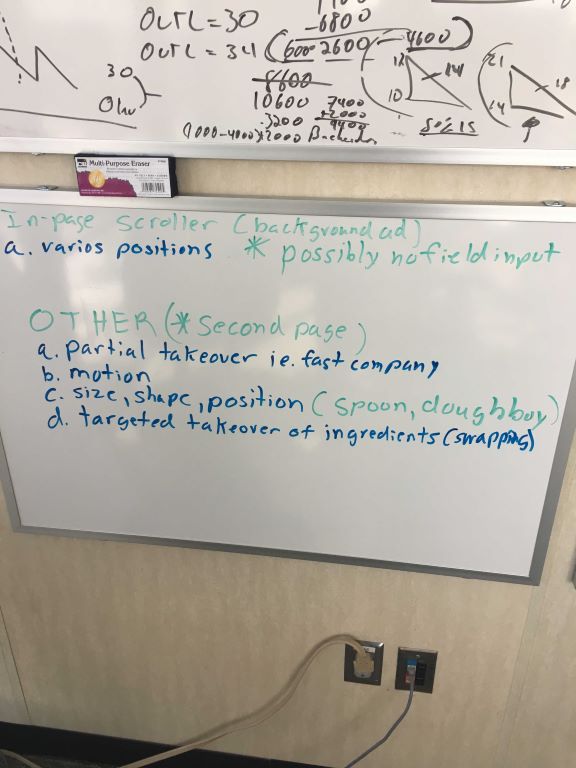 OUTL = 30
-6800
OUTL = 34 (6000 2600 4600)
30
8600
12
14
21
18
10
10600
7400
+2000
3200
9400
14
50% 15
Multi-Purpose Eraser
In-page scroller (background ad)
a. varios positions * possibly no field input
OTHER (* Second page)
a. partial takeover ie. fast company
b. motion
c. size, shape, position (spoon, doughboy)
d. targeted takeover of ingredients (swapping)